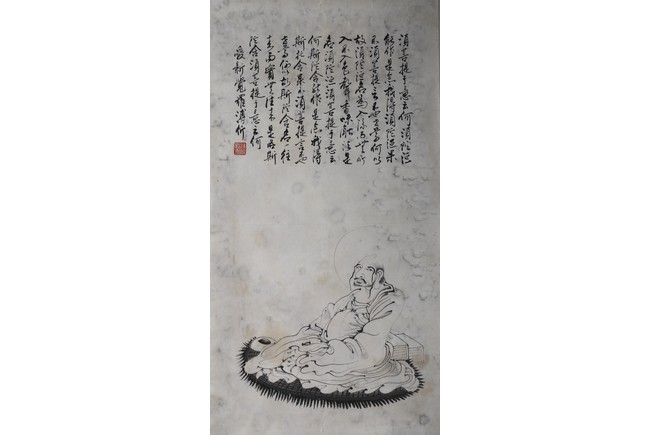 須菩提于意云何須陀洹
能作是念我得須陀洹果
不須菩提言不也世尊何以
故須陀洹名為入流而無所
入不入色聲香味觸法是
名須陀洹須菩提于意云
何斯陀含能作是念我得
斯陀含果不須菩提言不也
世尊何以故斯陀含名一往
來而實無往來是名斯
陀含須菩提于意云何
愛新覺羅溥